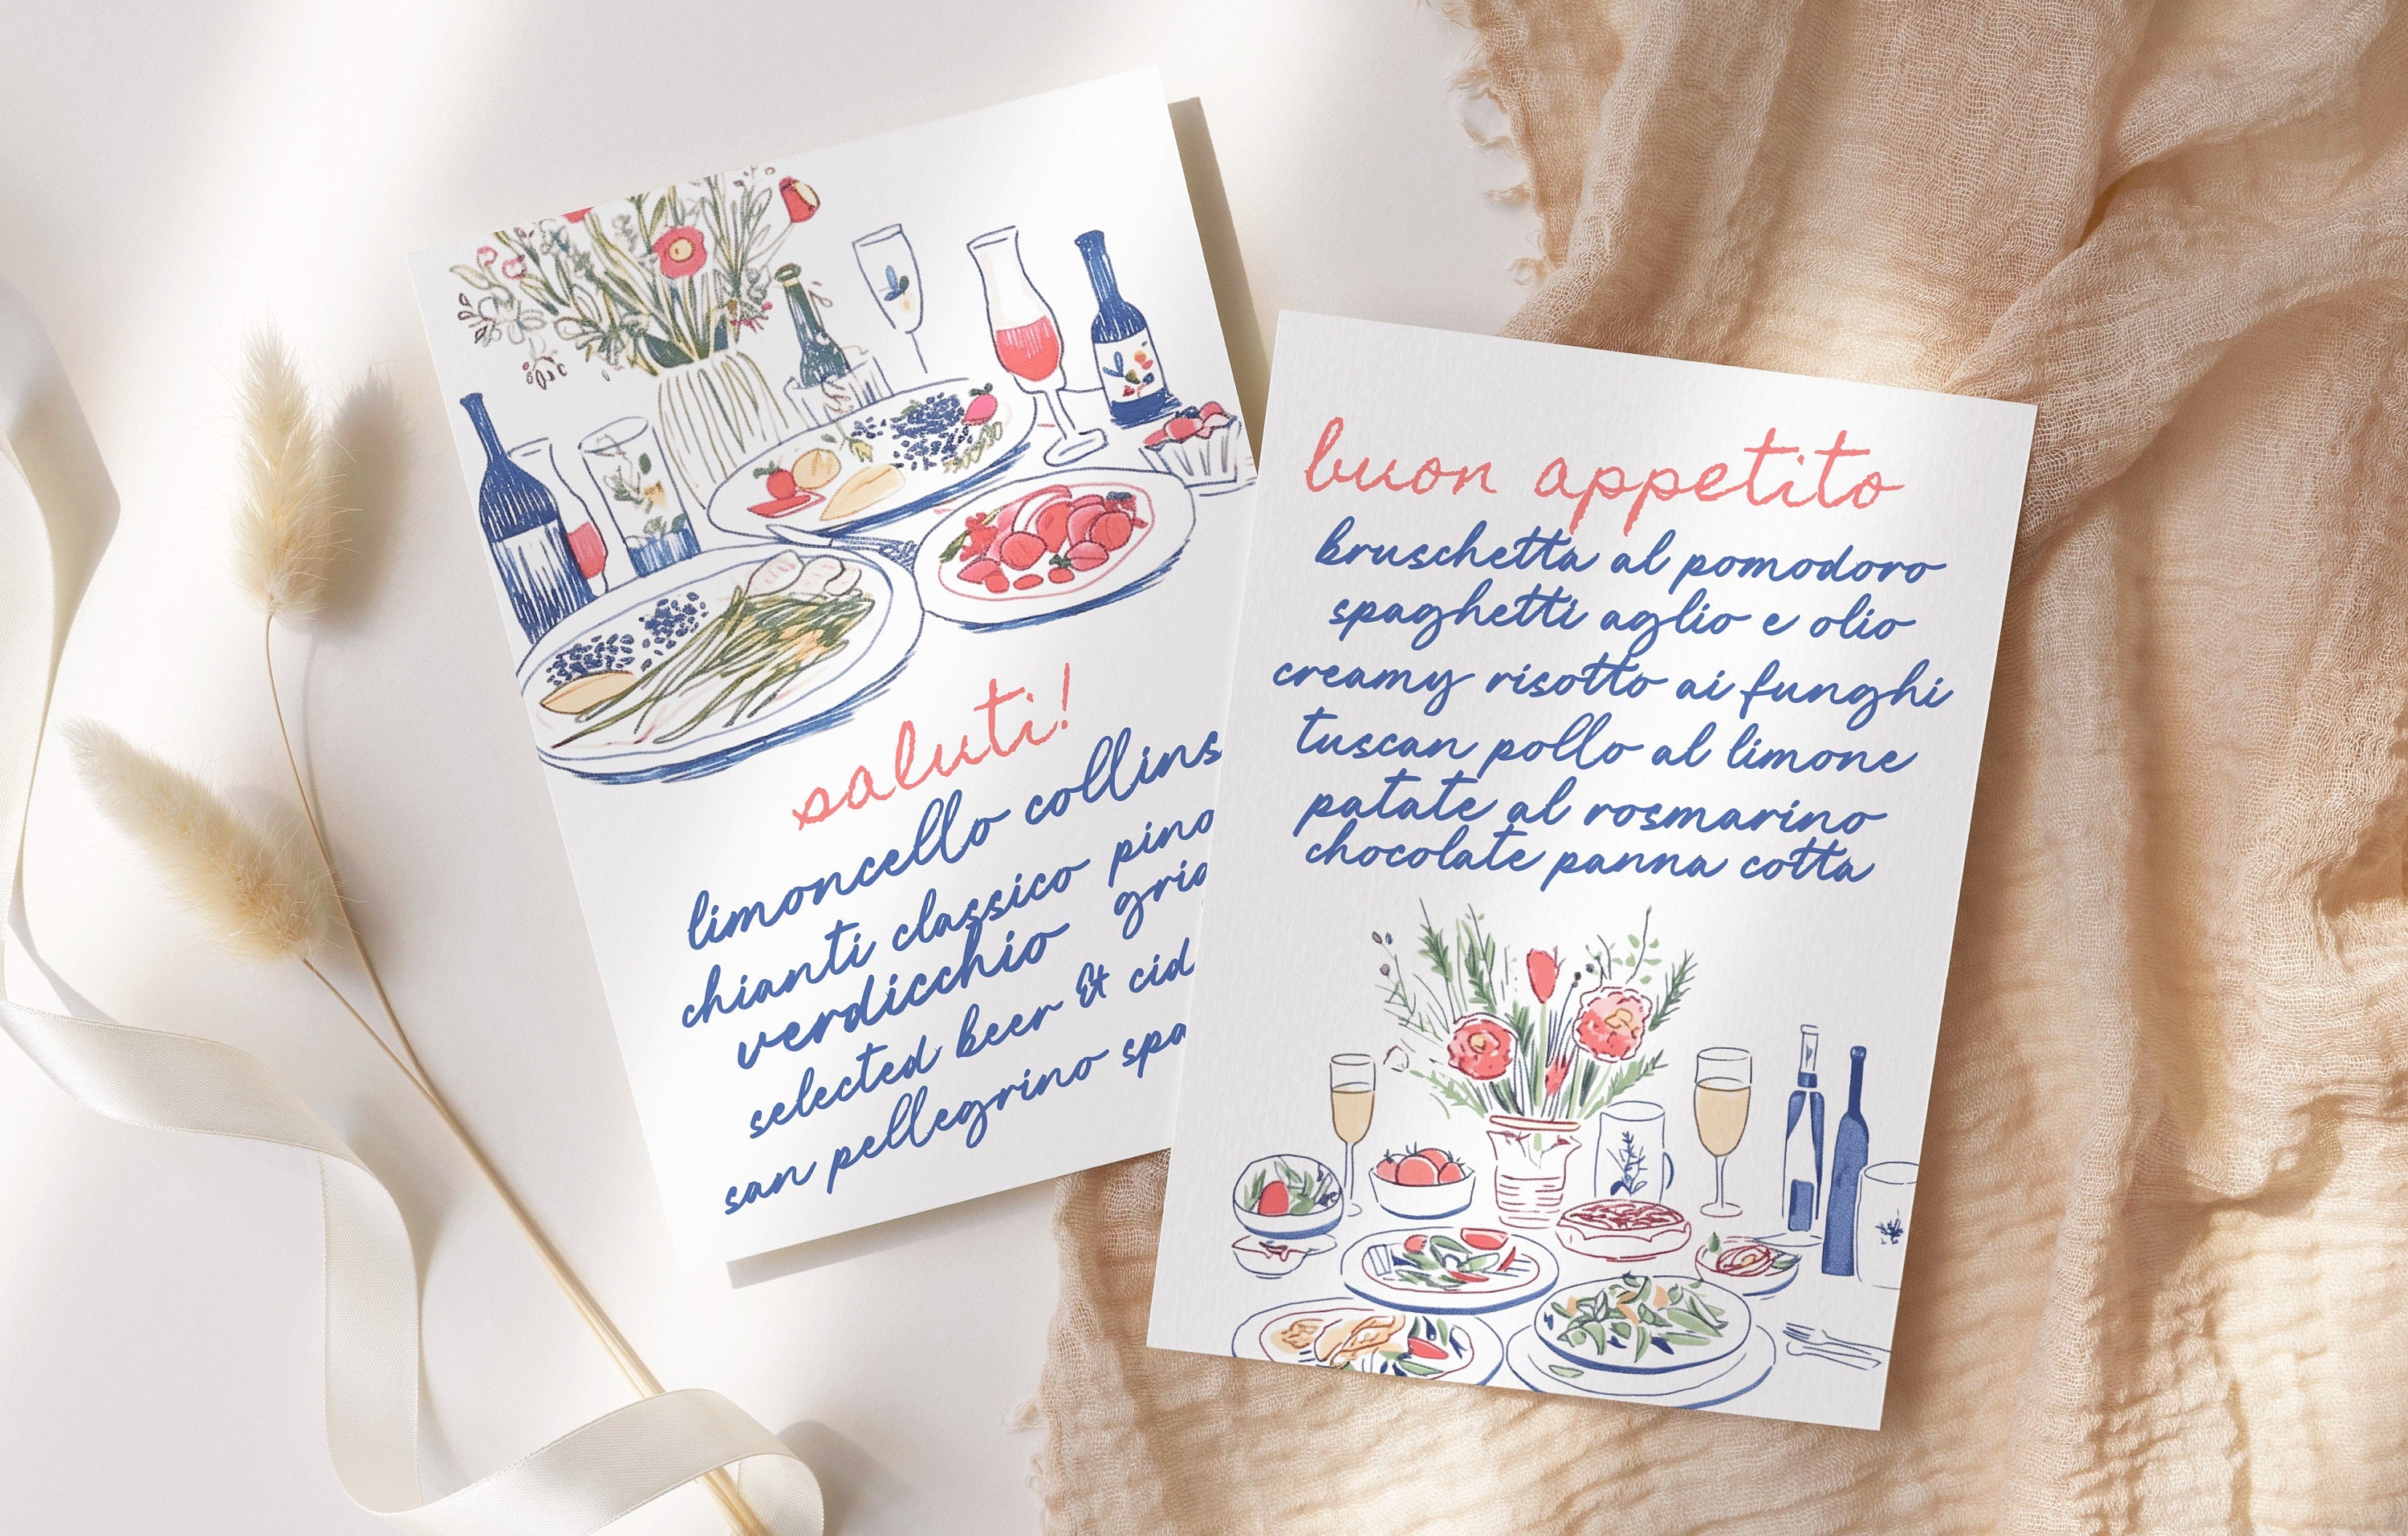 saluti!
limoncello collins
chianti classico pino
verdicchio grig
selected beer & cid
san pellegrino spa
buon appetito
bruschetta al pomodoro
spaghetti aglio e olio
creamy risotto ai funghi
tuscan pollo al limone
patate al rosmarino
chocolate panna cotta